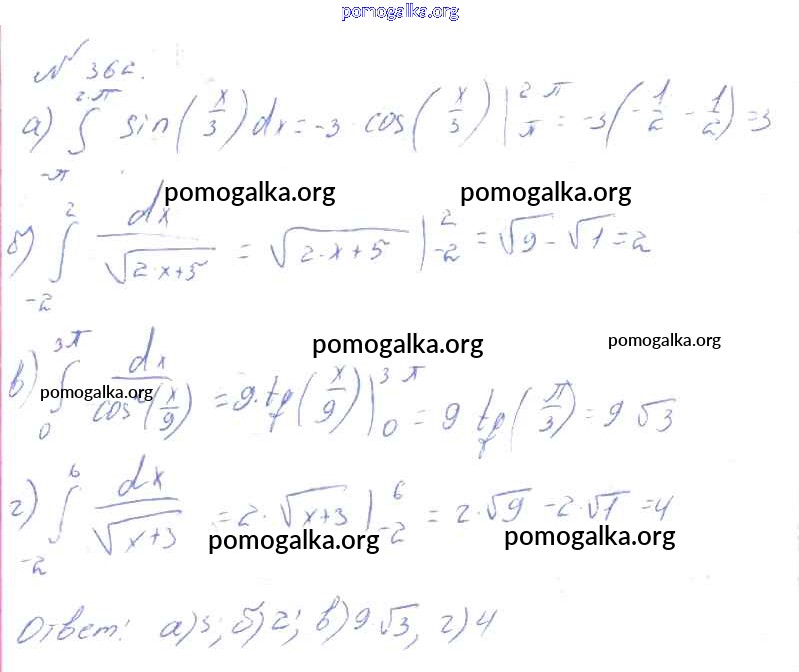 pomogalka.org
№ 362.
а) ∫_{-π}^{2·π} sin(x/3) dx = -3 · cos(x/3) |_{π}^{2 π} = -3(-1/2 - 1/2) = 3
pomogalka.org pomogalka.org
б) ∫_{-2}^{2} dx/√(2·x+5) = √(2·x+5) |_{-2}^{2} = √9 - √1 = 2
pomogalka.org pomogalka.org
pomogalka.org
в) ∫_{0}^{3π} dx/cos²(x/9) = 9·tg(x/9) |_{0}^{3 π} = 9 tg(π/3) = 9√3
г) ∫_{-2}^{6} dx/√(x+3) = 2·√(x+3) |_{-2}^{6} = 2·√9 - 2·√1 = 4
pomogalka.org pomogalka.org
Ответ: а)3; б)2; в)9·√3, г)4